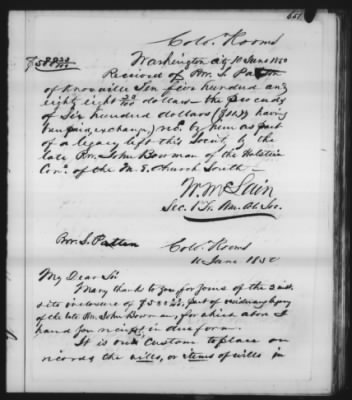 661
Colo. Rooms
$588 20/100 Washington City 10 June 1850
Received of Wm. S. Patten
of Knoxville Ten five hundred and
eighty eight 20/100 dollars the proceeds
of Six hundred dollars ($ having
been paid exchange) recd. by them as part
of a legacy left this Society by the
late Rev. John Bowman of the Holstein
Con. of the M. E. Church South.
W. McLain
Sec. & Tr. Am. Col. Soc.
Wm. S. Patten Colo. Rooms
11 June 1850
My Dear Sir
Many thanks to you for yours of the 3 inst.
with inclosure of $588 20, part of residuary legacy
of the late Rev. John Bowman, for which above I
hand you receipt in due form.
It is our custom to place on
records the wills, or items of wills in